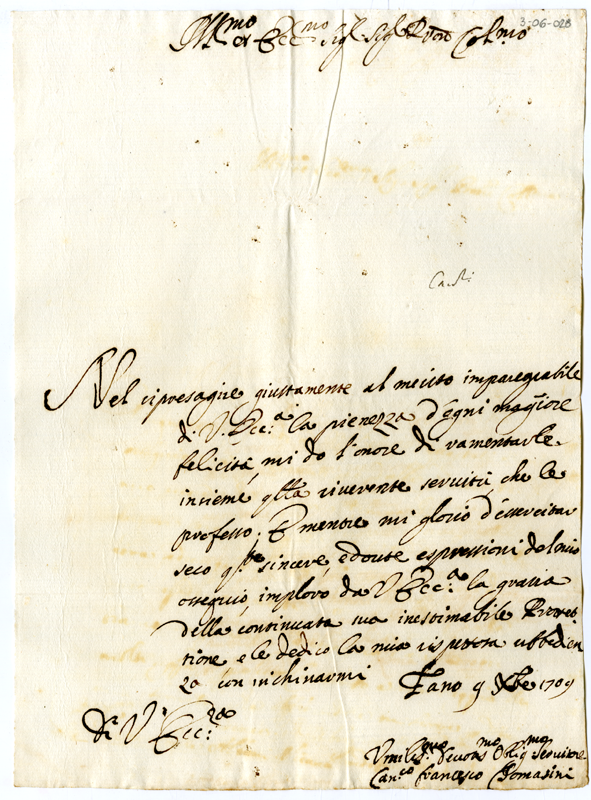 3-06-028
Ill.mo et Ecc.mo Sig.r Sig.r P.ron Col.mo
Nel ripresagire giustamente al merito impareggiabile
di V. Ecc.a la pienezza d'ogni maggiore
felicità, mi do l'onore di ramentarle
insieme q.lla riverente servitù, che le
professo; E mentre mi glorio d'essercitar
seco q.ste sincere, e dovute espressioni del mio
ossequio imploro da V Ecc.a la gratia
della continuata sua inestimabile Protet
tione, e le dedico la mia rispettosa ubbidien
za con inchinarmi
Fano 9 Xbre 1709
Di V. Ecc.za
Umiliss.mo Devotis.mo Oblig.mo Servitore
Can.co Francesco Tomasini